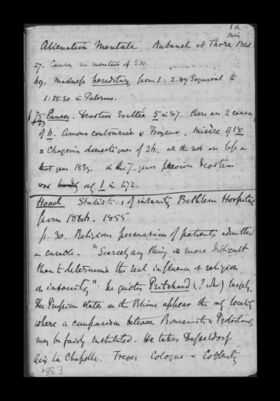 Alienation Mentale. Aubanel et Thore 1841
27. Causes no mention of
69. Madness hereditary from 1: 2.89 Esquirol to
1:15.30 in Palermo.
75 Causes: Devotion Exaltée 5 in 37. there are 2 cases
of h. Amour contrariée &
Chagrins domestiques of 26.
that year 1839. in the 7. years previous Devotion
was only 1 in 42.
Hood Statistics of insanity Bethlem Hospital
from 1846. 1855
p. 30. Religious persuasion of patients admitted
as curable. "Scarcely any thing is more difficult
than to determine the real influence of religion
on insanity". he quotes Pritchard (? who) largely.
The Prussian States on the Rhine appear the only locality
where a comparison between Romanists & Protestants
may be fairly instituted. He takes Dusseldorf
Aix la Chapelle. Treves Cologne & Coblentz